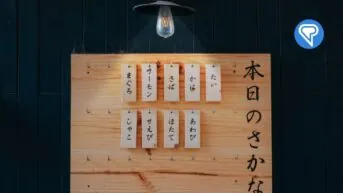 本日のさかな
たい
さば
サーモン
まぐろ
あわび
ほたて
しゃこ